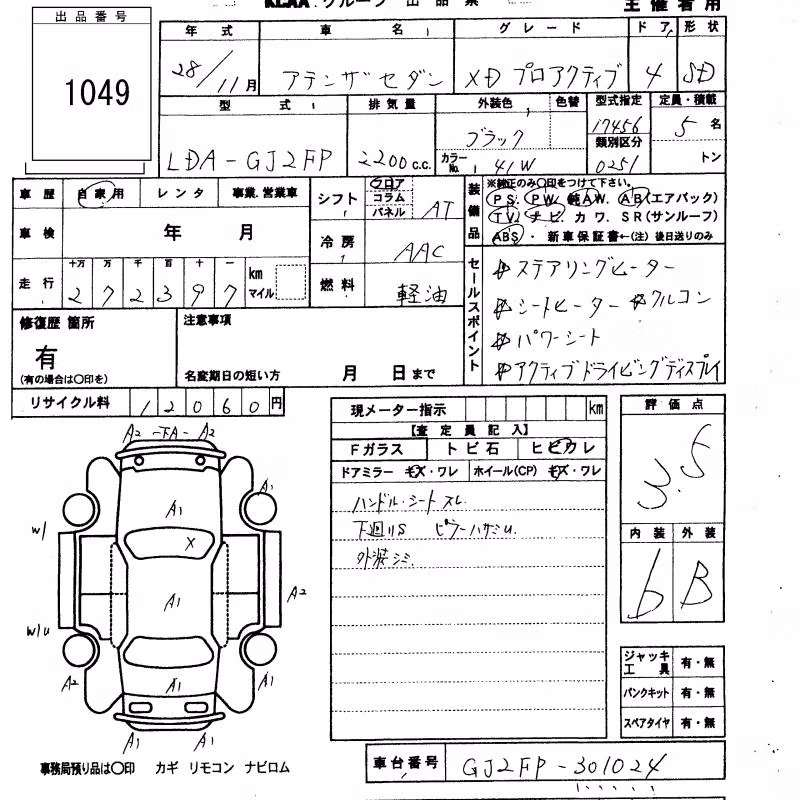 KCAA グループ 出品票 主催者用
出品番号
1049
年式 車名 グレード ドア 形状
28/11月 アテンザセダン XD プロアクティブ 4 SD
型式 排気量 外装色 色替 型式指定 定員・積載
LDA-GJ2FP 2200c.c. ブラック 17456 5名
類別区分
カラーNo. 41W 0251 トン
車歴 自家用 レンタ 事業.営業車
シフト フロア コラム パネル AT
装備品 ※純正のみ〇印をつけて下さい。
PS. PW. 純AW. AB(エアバック)
TV. ナビ カワ. SR(サンルーフ)
ABS・新車保証書←(注)後日送りのみ
車検 年 月
冷房 AAC
走行 十万 万 千 百 十 一
272397 km マイル
燃料 軽油
セールスポイント
ステアリングヒーター
シートヒーター クルコン
パワーシート
アクティブドライビングディスプレイ
修復歴 箇所
有
(有の場合は〇印を)
注意事項
名変期日の短い方 月 日まで
リサイクル料 12060円
現メーター指示 km
【査定員記入】
Fガラス トビ石 ヒビワレ
ドアミラー キズ・ワレ ホイール(CP) キズ・ワレ
ハンドル・シート スレ
下廻りS ピラーハサミU.
外装シミ
評価点
3.5
内装 外装
6 B
A2 -下A- A2
A1
A1
X
W1
A1
A2
W1U
A2 A1 A1
A1 A1
ジャッキ 工具 有・無
パンクキット 有・無
スペアタイヤ 有・無
事務局預り品は〇印 カギ リモコン ナビロム
車台番号 GJ2FP-301024